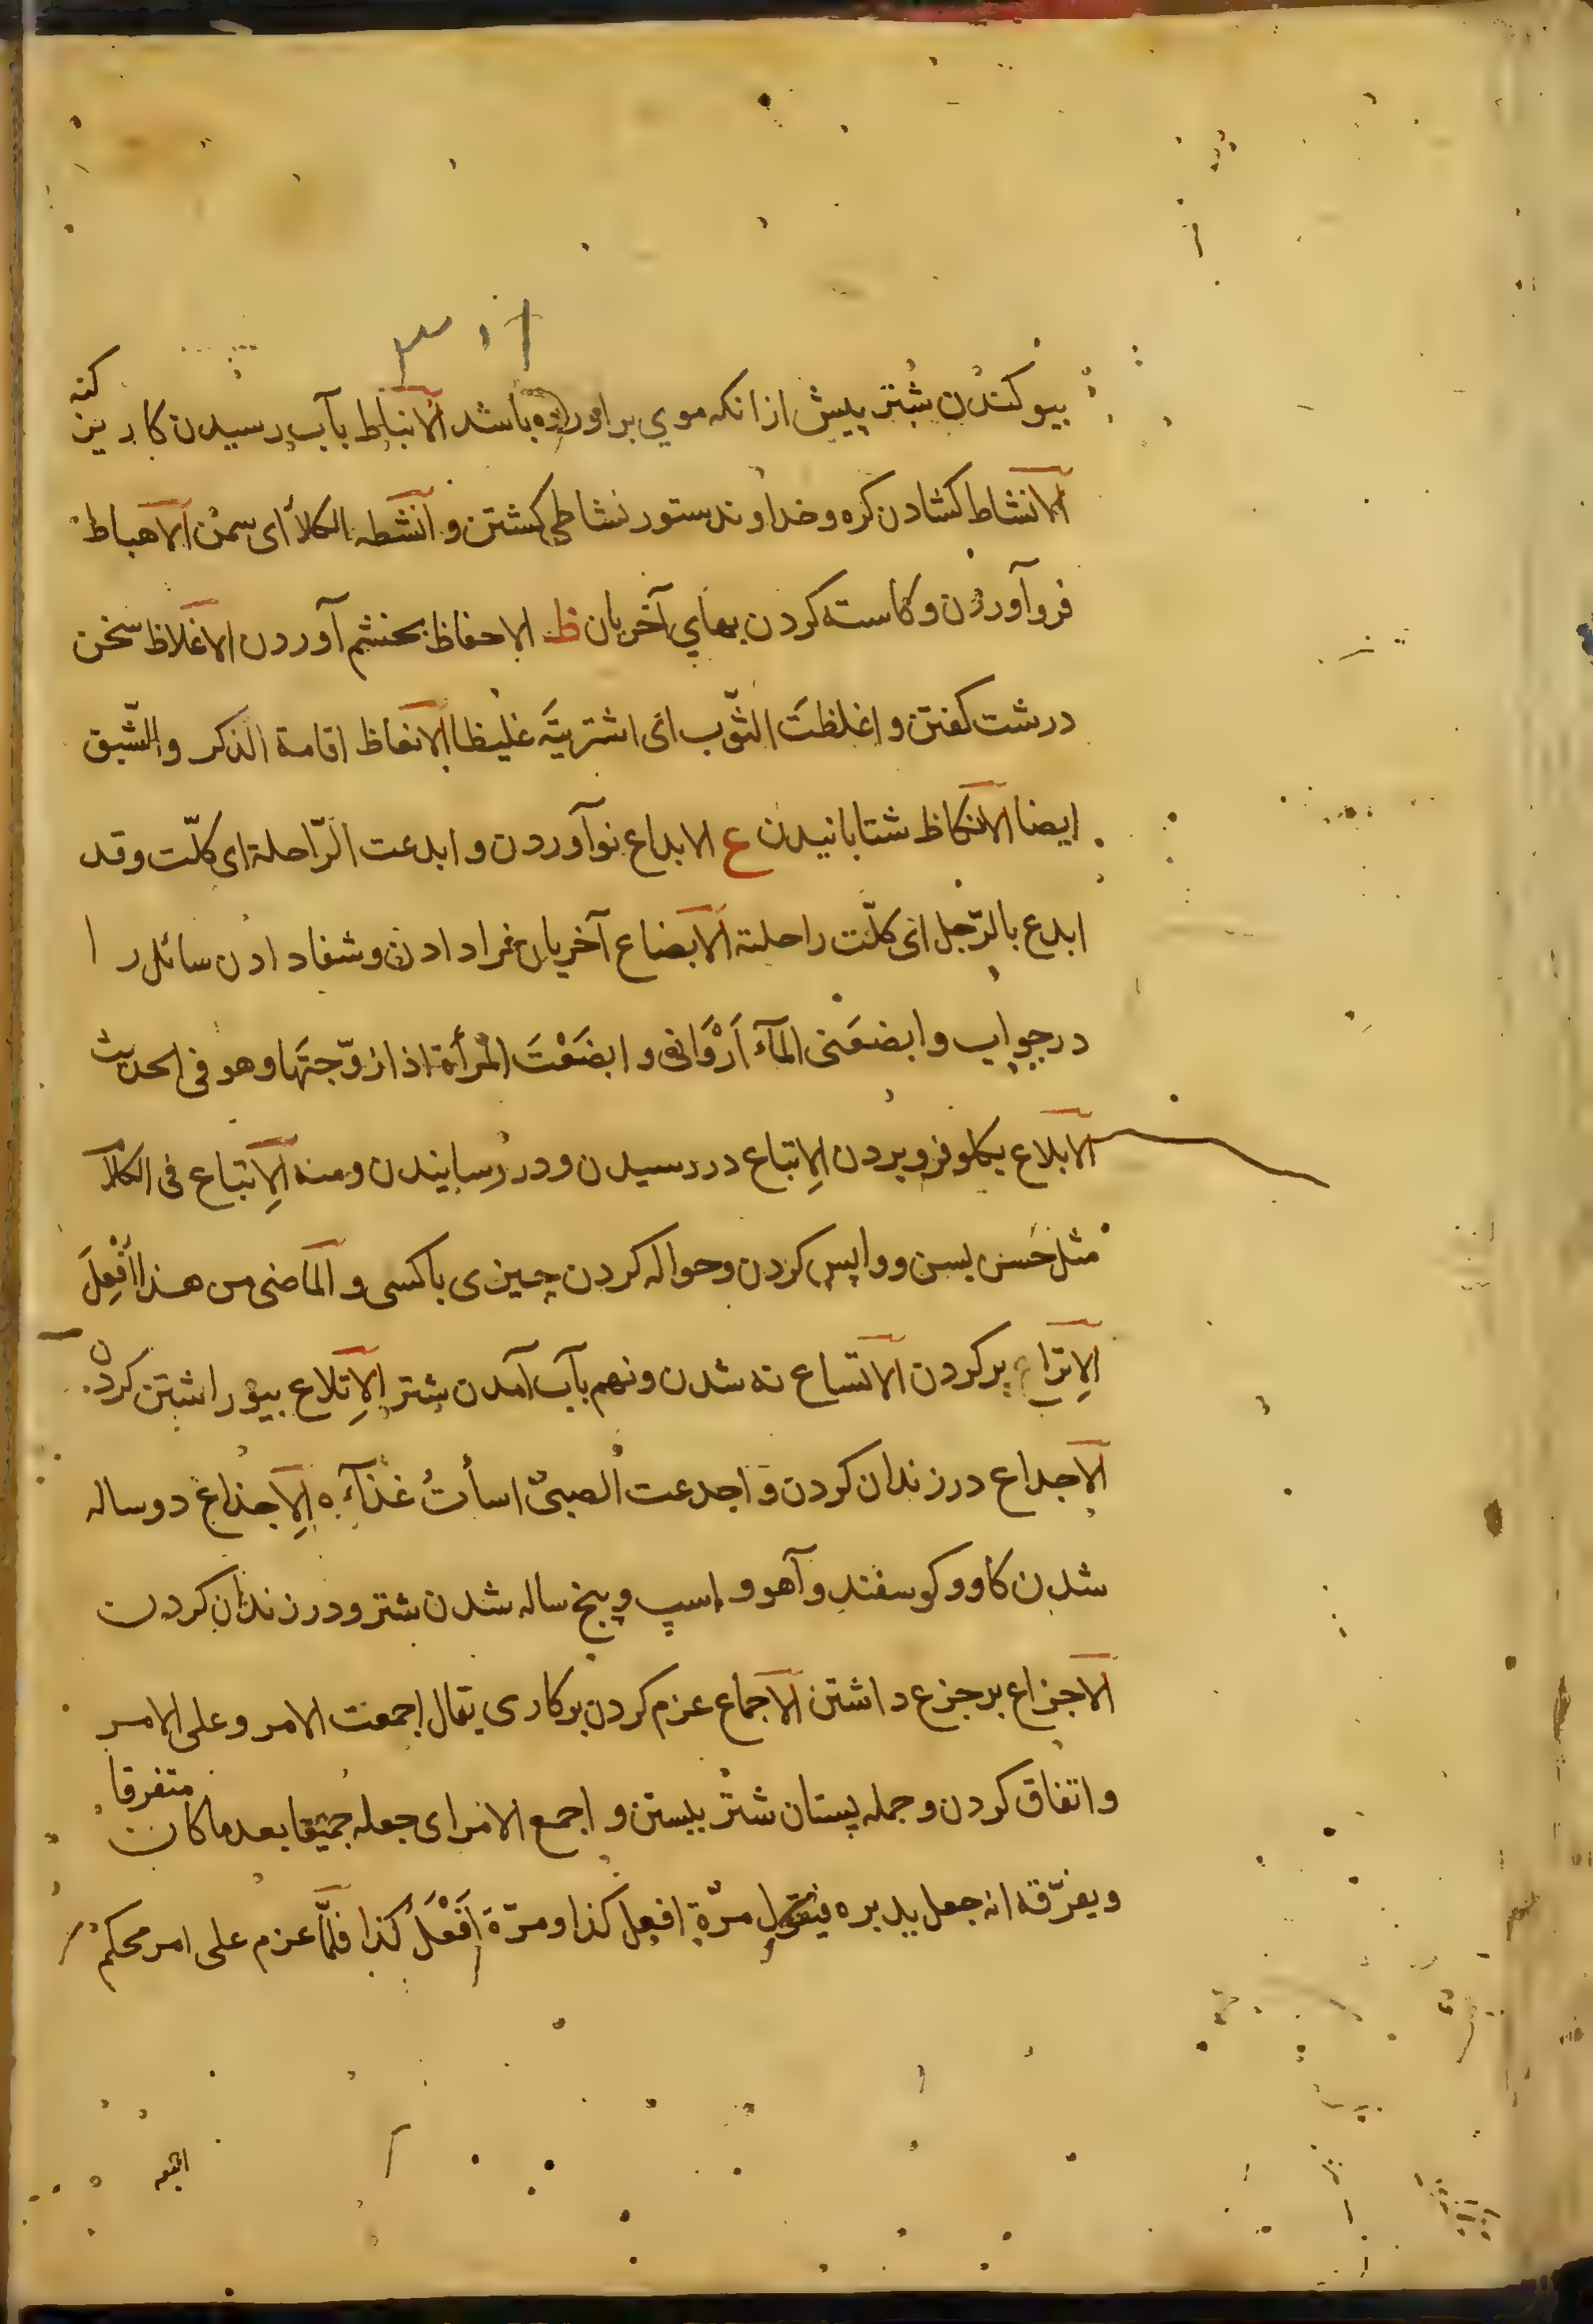 بیوکندن شتر پیش ازانکه موی براورده باشد الانباط بآب رسیدن کاریز کنه
الانشاط کشادن کره و خداوند ستور نشاطی کشتن و انشطه الکلأ ای سمن الاهباط
فروآوردن و کاسته کردن بهای آخریان ظ الاحفاظ بخشم آوردن الاغلاظ سخن
درشت کفتن و اغلظت الثّوب ای اشتریتَه غلیظا الانعاظ اقامة الذکر والشّبق
ایضا الانکاظ شتابانیدن ع الابداع نوآوردن و ابدعت الرّاحلة ای کلّت وقد
ابدع بالرّجل ای کلّت راحلته الابضاع آخریان فرا دادن و شفا دادن سائل را
در جواب و ابضعَنی المآء اَرْوَانی و ابضَعْتَ المرأة اذا زوّجتَها و هو فی الحدیث
الابلاع بکلو فرو بردن الاِتباع در رسیدن و در رسانیدن ومنه الاِتباع فی الکلام
مثل حَسَن بسن و واپس کردن و حواله کردن چیزی باکسی و الماضی من هذا اُفْعِلَ
الاِتراع پر کردن الاتساع نه شدن و نهم بآب آمدن شتر الاِتلاع بیور اشتن کردن
الاجداع در زندان کردن و اجدعت الصبیّ اسأتُ غذآءه الاِجذاع دو ساله
شدن کاو و کوسفند و آهو و اسپ و پنج ساله شدن شتر و در زندان کردن
الاجزاع بر جزع داشتن الاجماع عزم کردن بر کاری یقال اجمعت الامر و علی الامر
و اتفاق کردن و جمله پستان شتر ببستن و اجمع الامر ای جعله جمیعا بعد ما کان متفرقا
و یفرّقه انه جعل یدبره فیقول مرّة افعل کذا و مرّة اَفْعَلُ کذا فلمّا عزم علی امر محکم